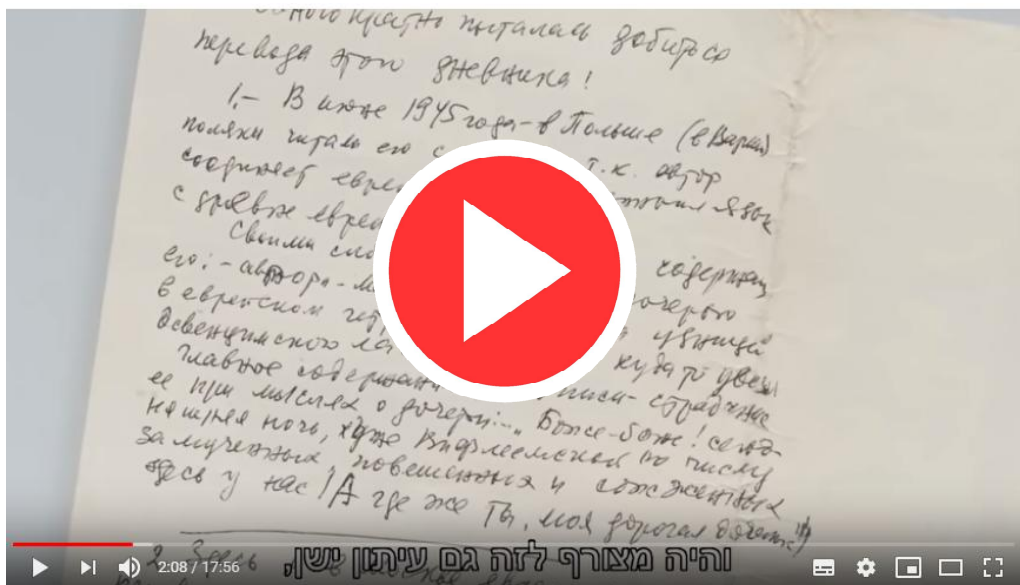 пыталась добиться
перевода этого дневника!
1,- В июне 1945 года - в Польше (в Варш)
поляки читали его с т.к. автор
соединяет евре язык
с древне евре
Своими сло содержан
его: - автор - м дочерью
в еврейском гет узницей
Освенцимского ла куда то увезли
Главное содержан писи - страдание
ее при мыслях о дочери: „ Боже - боже! сегод-
няшняя ночь, хуже Вифлеемской по числу
замученных, повешенных и сожженных
здесь у нас! А где же ты, моя дорогая доченька
2. Здесь
והיה מצורף לזה גם עיתון ישן,
2:08 / 17:56